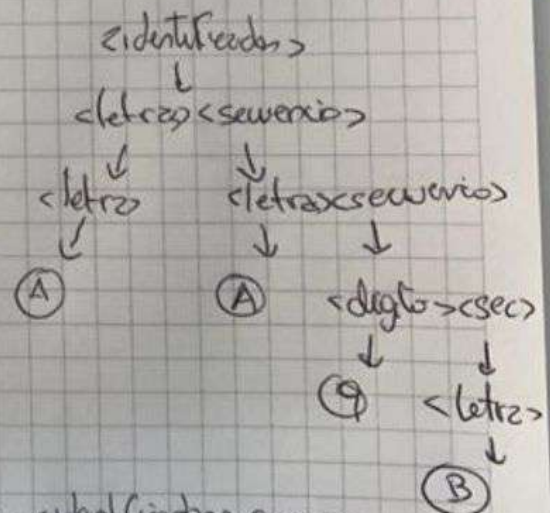 <identificador>
<letra><secuencia>
<letra> <letra><secuencia>
A A <digito><sec>
9 <letra>
B